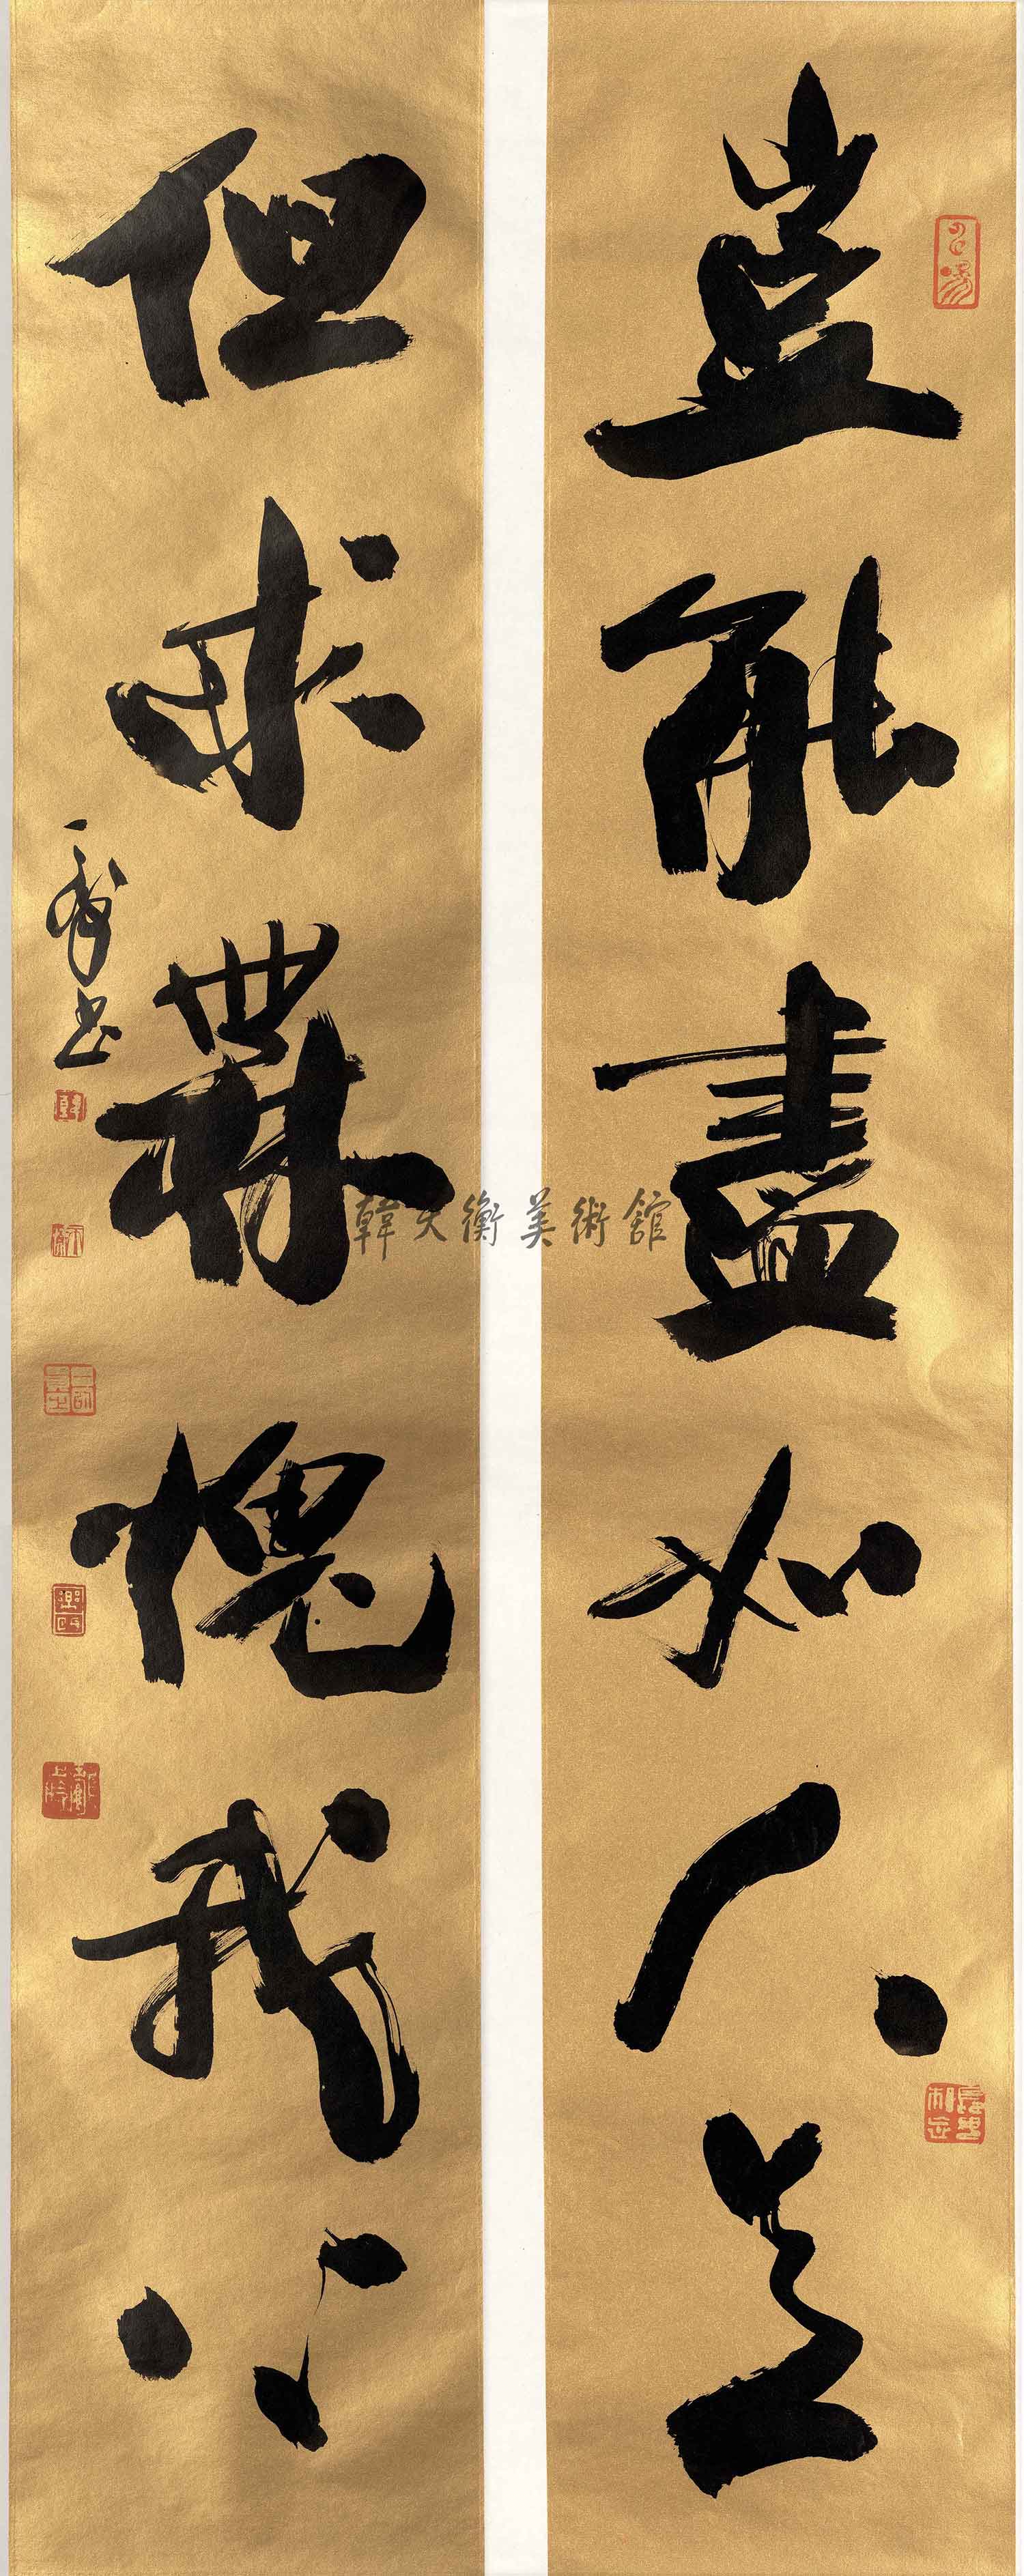 豈能盡如人意
但求無愧我心
韓天衡美術館